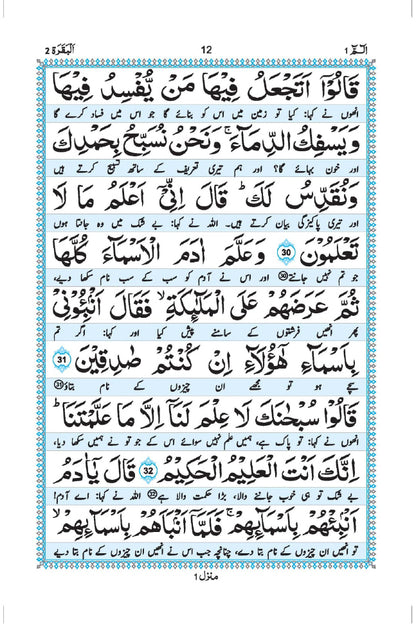 الٓـمّٓ 1 12 اَلْبَقَرَة 2
قَالُوْٓا اَتَجْعَلُ فِيْهَا مَنْ يُّفْسِدُ فِيْهَا
انھوں نے کہا: کیا تو زمین میں اس کو بنائے گا جو اس میں فساد کرے گا
وَيَسْفِكُ الدِّمَآءَ ۚ وَنَحْنُ نُسَبِّحُ بِحَمْدِكَ
اور خون بہائے گا؟ اور ہم تیری تعریف کے ساتھ تسبیح کرتے ہیں
وَنُقَدِّسُ لَكَ ؕ قَالَ اِنِّيْٓ اَعْلَمُ مَا لَا
اور تیری پاکیزگی بیان کرتے ہیں۔ اللہ نے کہا: بے شک میں وہ جانتا ہوں
تَعْلَمُوْنَ 30 وَعَلَّمَ اٰدَمَ الْاَسْمَآءَ كُلَّهَا
جو تم نہیں جانتے 30 اور اس نے آدم کو سب کے سب نام سکھا دیے،
ثُمَّ عَرَضَهُمْ عَلَى الْمَلٰٓئِكَةِ ۙ فَقَالَ اَنْۢبِـُٔوْنِيْ
پھر انھیں فرشتوں کے سامنے پیش کیا اور کہا: اگر تم
بِاَسْمَآءِ هٰٓؤُلَآءِ اِنْ كُنْتُمْ صٰدِقِيْنَ 31
سچے ہو تو مجھے ان چیزوں کے نام بتاؤ 31
قَالُوْا سُبْحٰنَكَ لَا عِلْمَ لَنَآ اِلَّا مَا عَلَّمْتَنَا ؕ
انھوں نے کہا: تو پاک ہے، ہمیں علم نہیں سوائے اس کے جو تو نے ہمیں سکھا دیا،
اِنَّكَ اَنْتَ الْعَلِيْمُ الْحَكِيْمُ 32 قَالَ يٰٓاٰدَمُ
بے شک تو ہی خوب جاننے والا، بڑا حکمت والا ہے 32 اللہ نے کہا: اے آدم!
اَنْۢبِئْهُمْ بِاَسْمَآئِهِمْ ۚ فَلَمَّآ اَنْۢبَاَهُمْ بِاَسْمَآئِهِمْ ۙ
تو انھیں ان چیزوں کے نام بتا دے، چنانچہ جب اس نے انھیں ان چیزوں کے نام بتا دیے
منزل 1